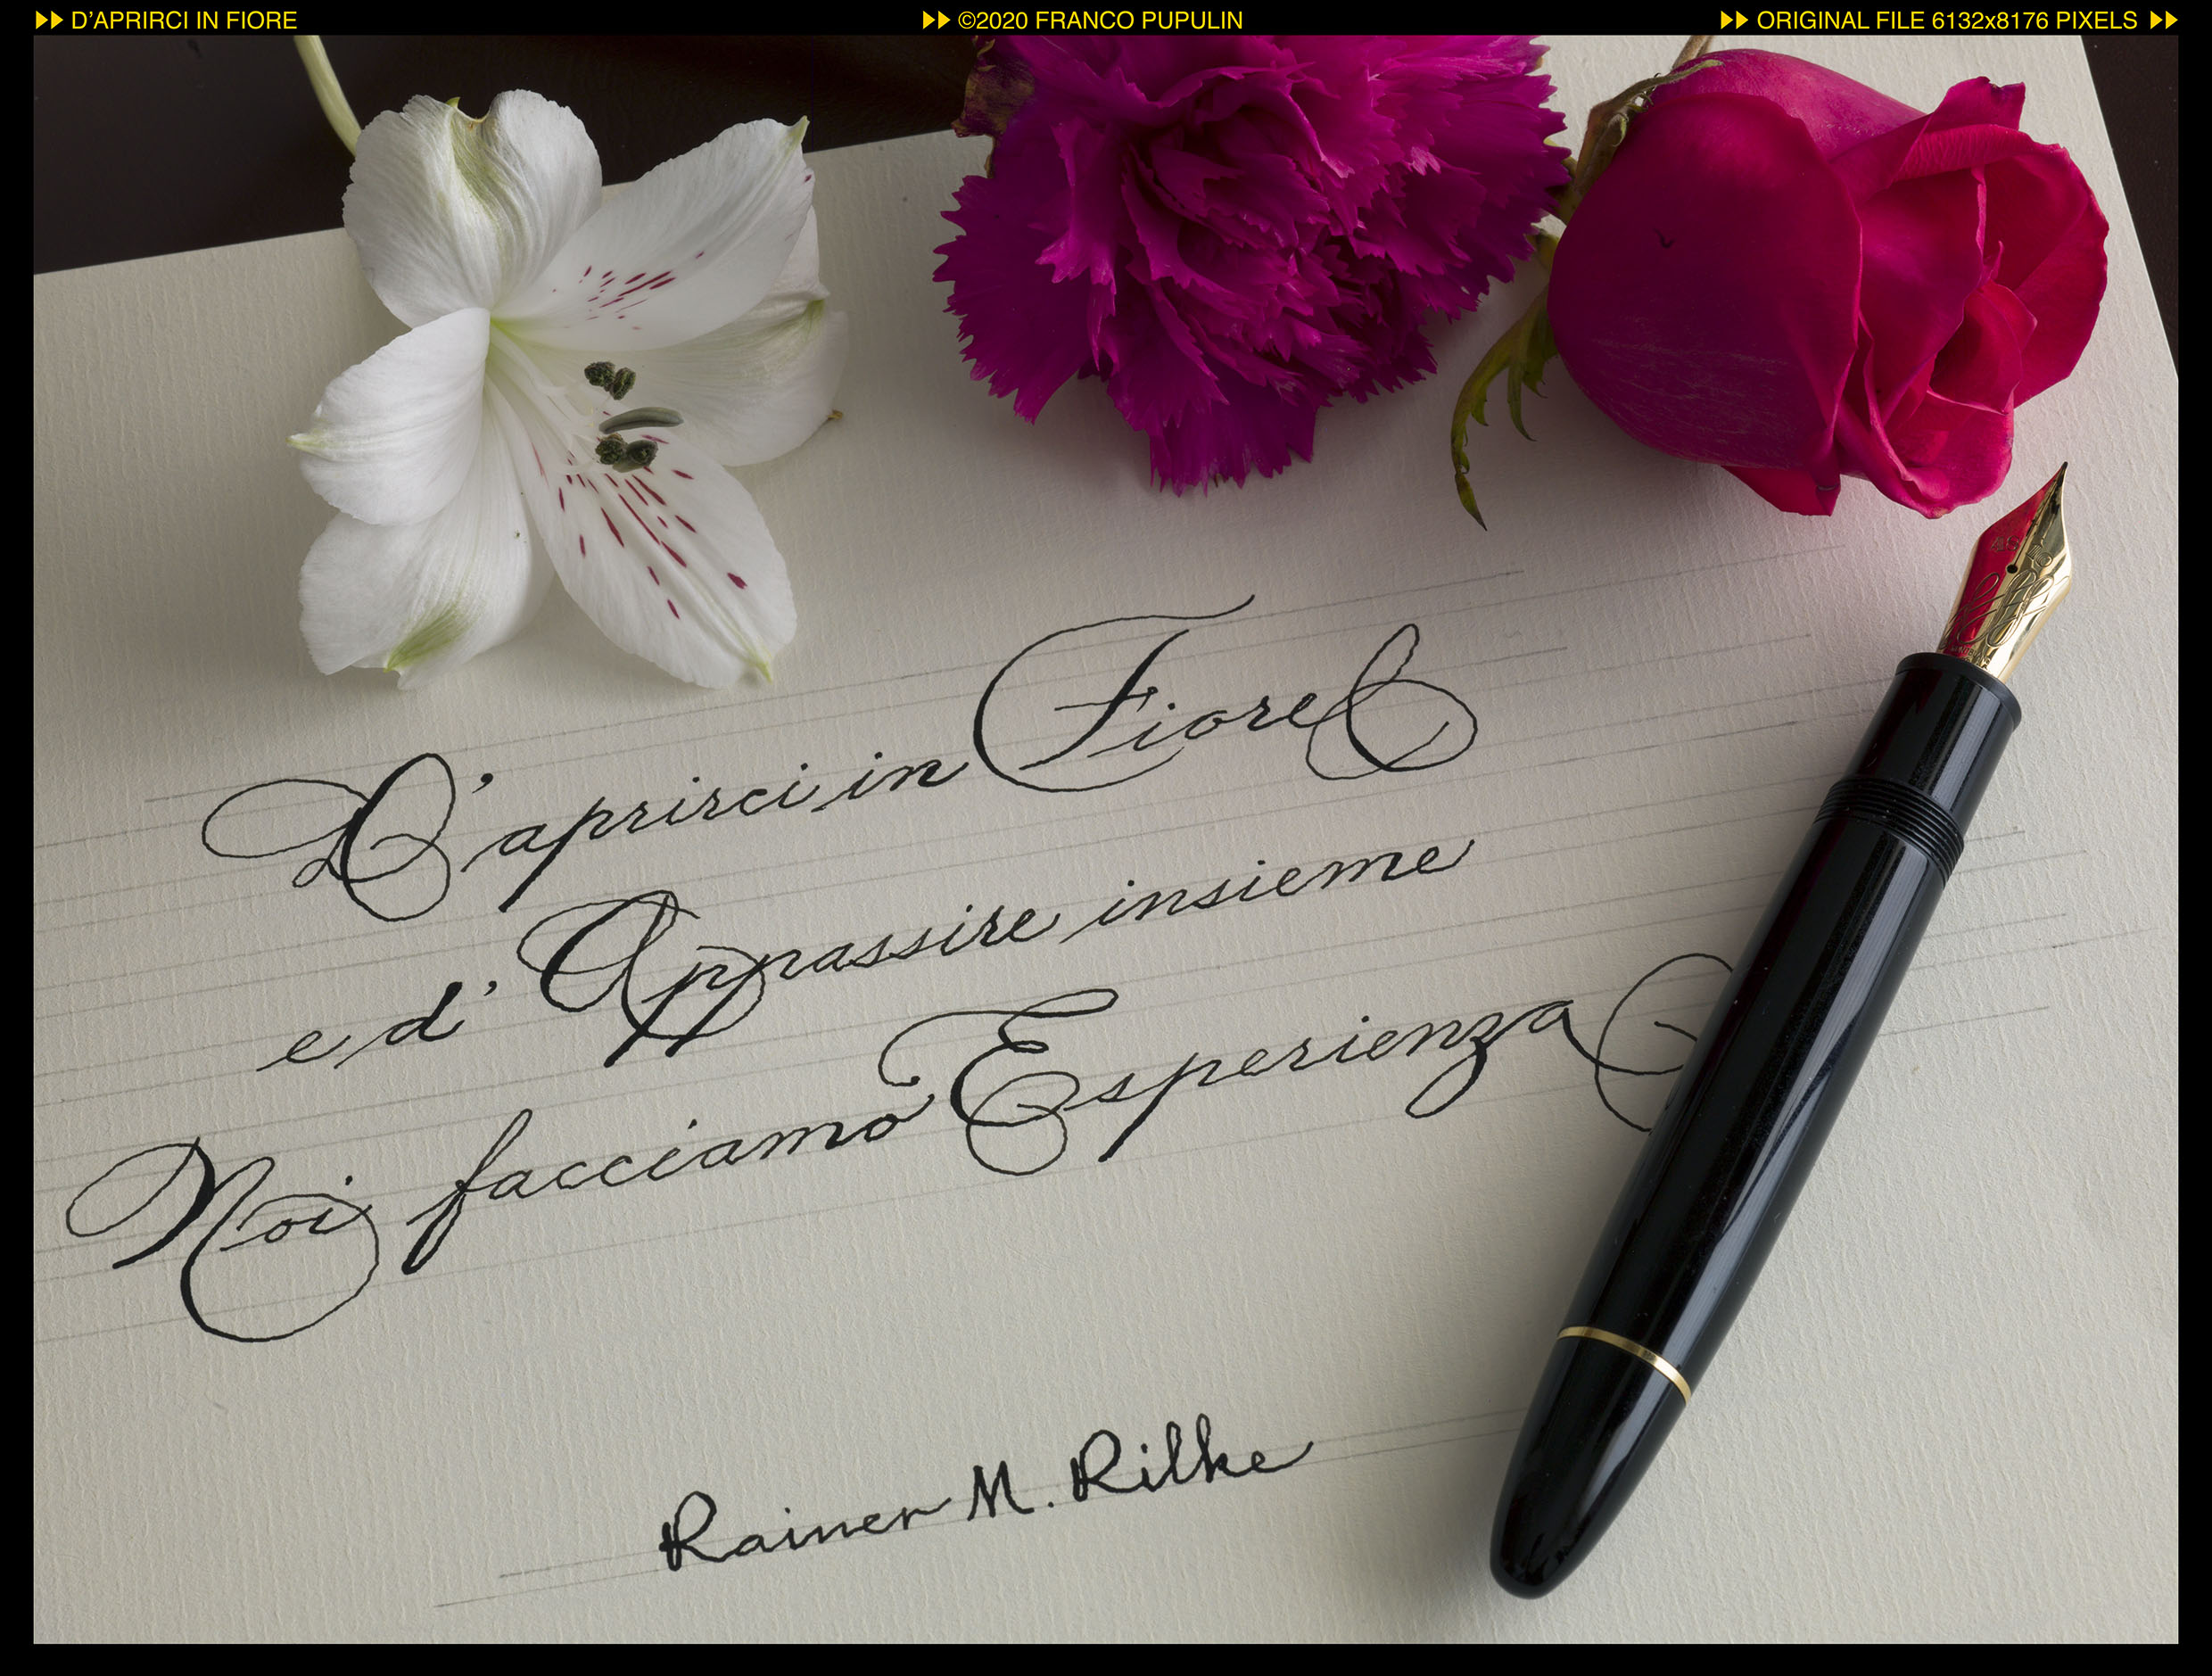 D'APRIRCI IN FIORE
©2020 FRANCO PUPULIN
ORIGINAL FILE 6132x8176 PIXELS
D'aprirci in Fiore
e d'Appassire insieme
Noi facciamo Esperienza
Rainer M. Rilke